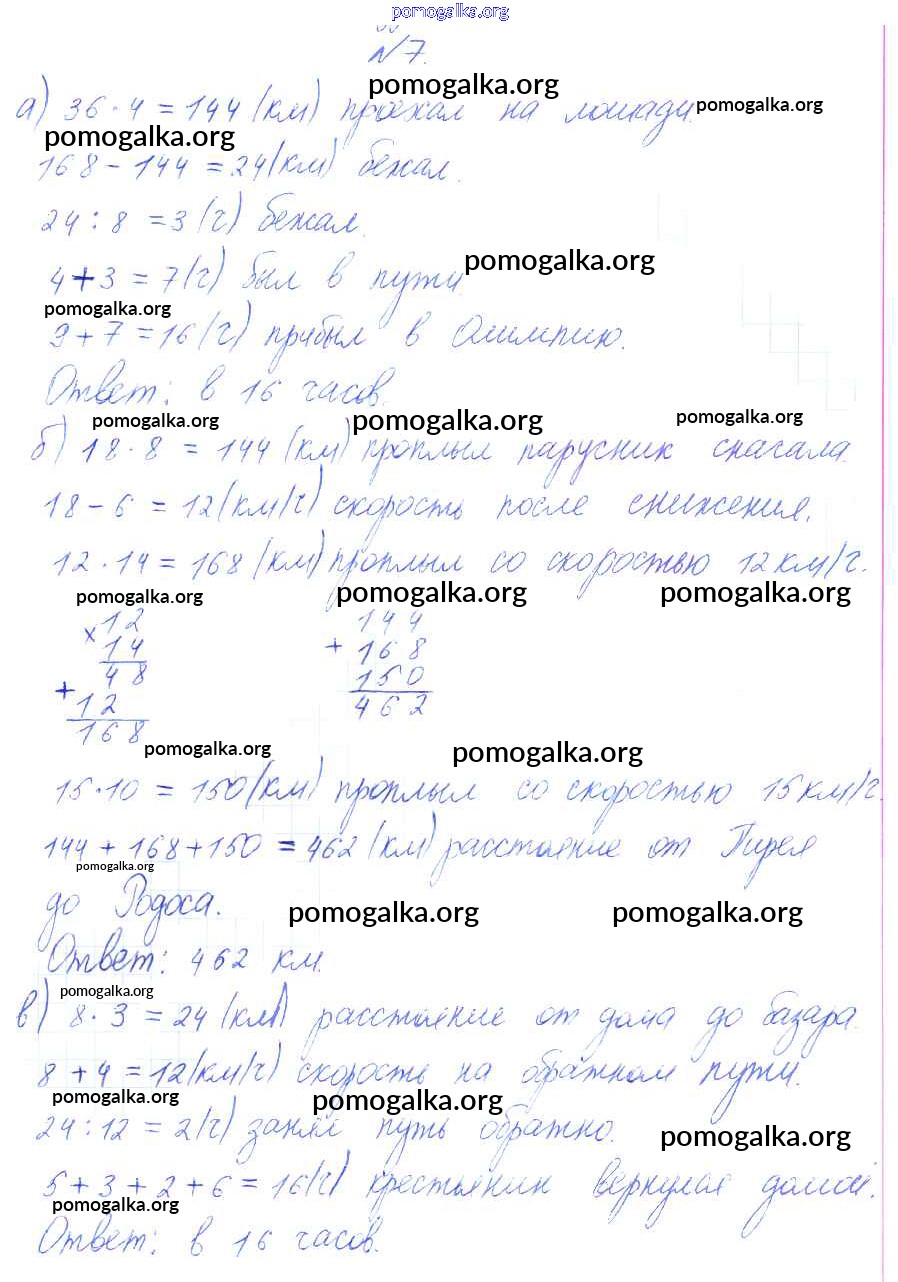 pomogalka.org
№7.
pomogalka.org
а) 36 · 4 = 144 (км) проехал на лошади.
pomogalka.org
pomogalka.org
168 - 144 = 24 (км) бежал.
24 : 8 = 3 (ч) бежал.
pomogalka.org
4 + 3 = 7 (ч) был в пути.
pomogalka.org
9 + 7 = 16 (ч) прибыл в Олимпию.
Ответ: в 16 часов.
pomogalka.org pomogalka.org pomogalka.org
б) 18 · 8 = 144 (км) проплыл парусник сначала.
18 - 6 = 12 (км/ч) скорость после снижения.
12 · 14 = 168 (км) проплыл со скоростью 12 км/ч.
pomogalka.org pomogalka.org pomogalka.org
× 12
14
48
+ 12
168
144
+ 168
150
462
pomogalka.org pomogalka.org
15 · 10 = 150 (км) проплыл со скоростью 15 км/ч.
144 + 168 + 150 = 462 (км) расстояние от Пирея
pomogalka.org
до Родоса.
pomogalka.org pomogalka.org
Ответ: 462 км.
pomogalka.org
в) 8 · 3 = 24 (км) расстояние от дома до базара.
8 + 4 = 12 (км/ч) скорость на обратном пути.
pomogalka.org pomogalka.org
24 : 12 = 2 (ч) занял путь обратно.
pomogalka.org
5 + 3 + 2 + 6 = 16 (ч) крестьянин вернулся домой.
pomogalka.org
Ответ: в 16 часов.